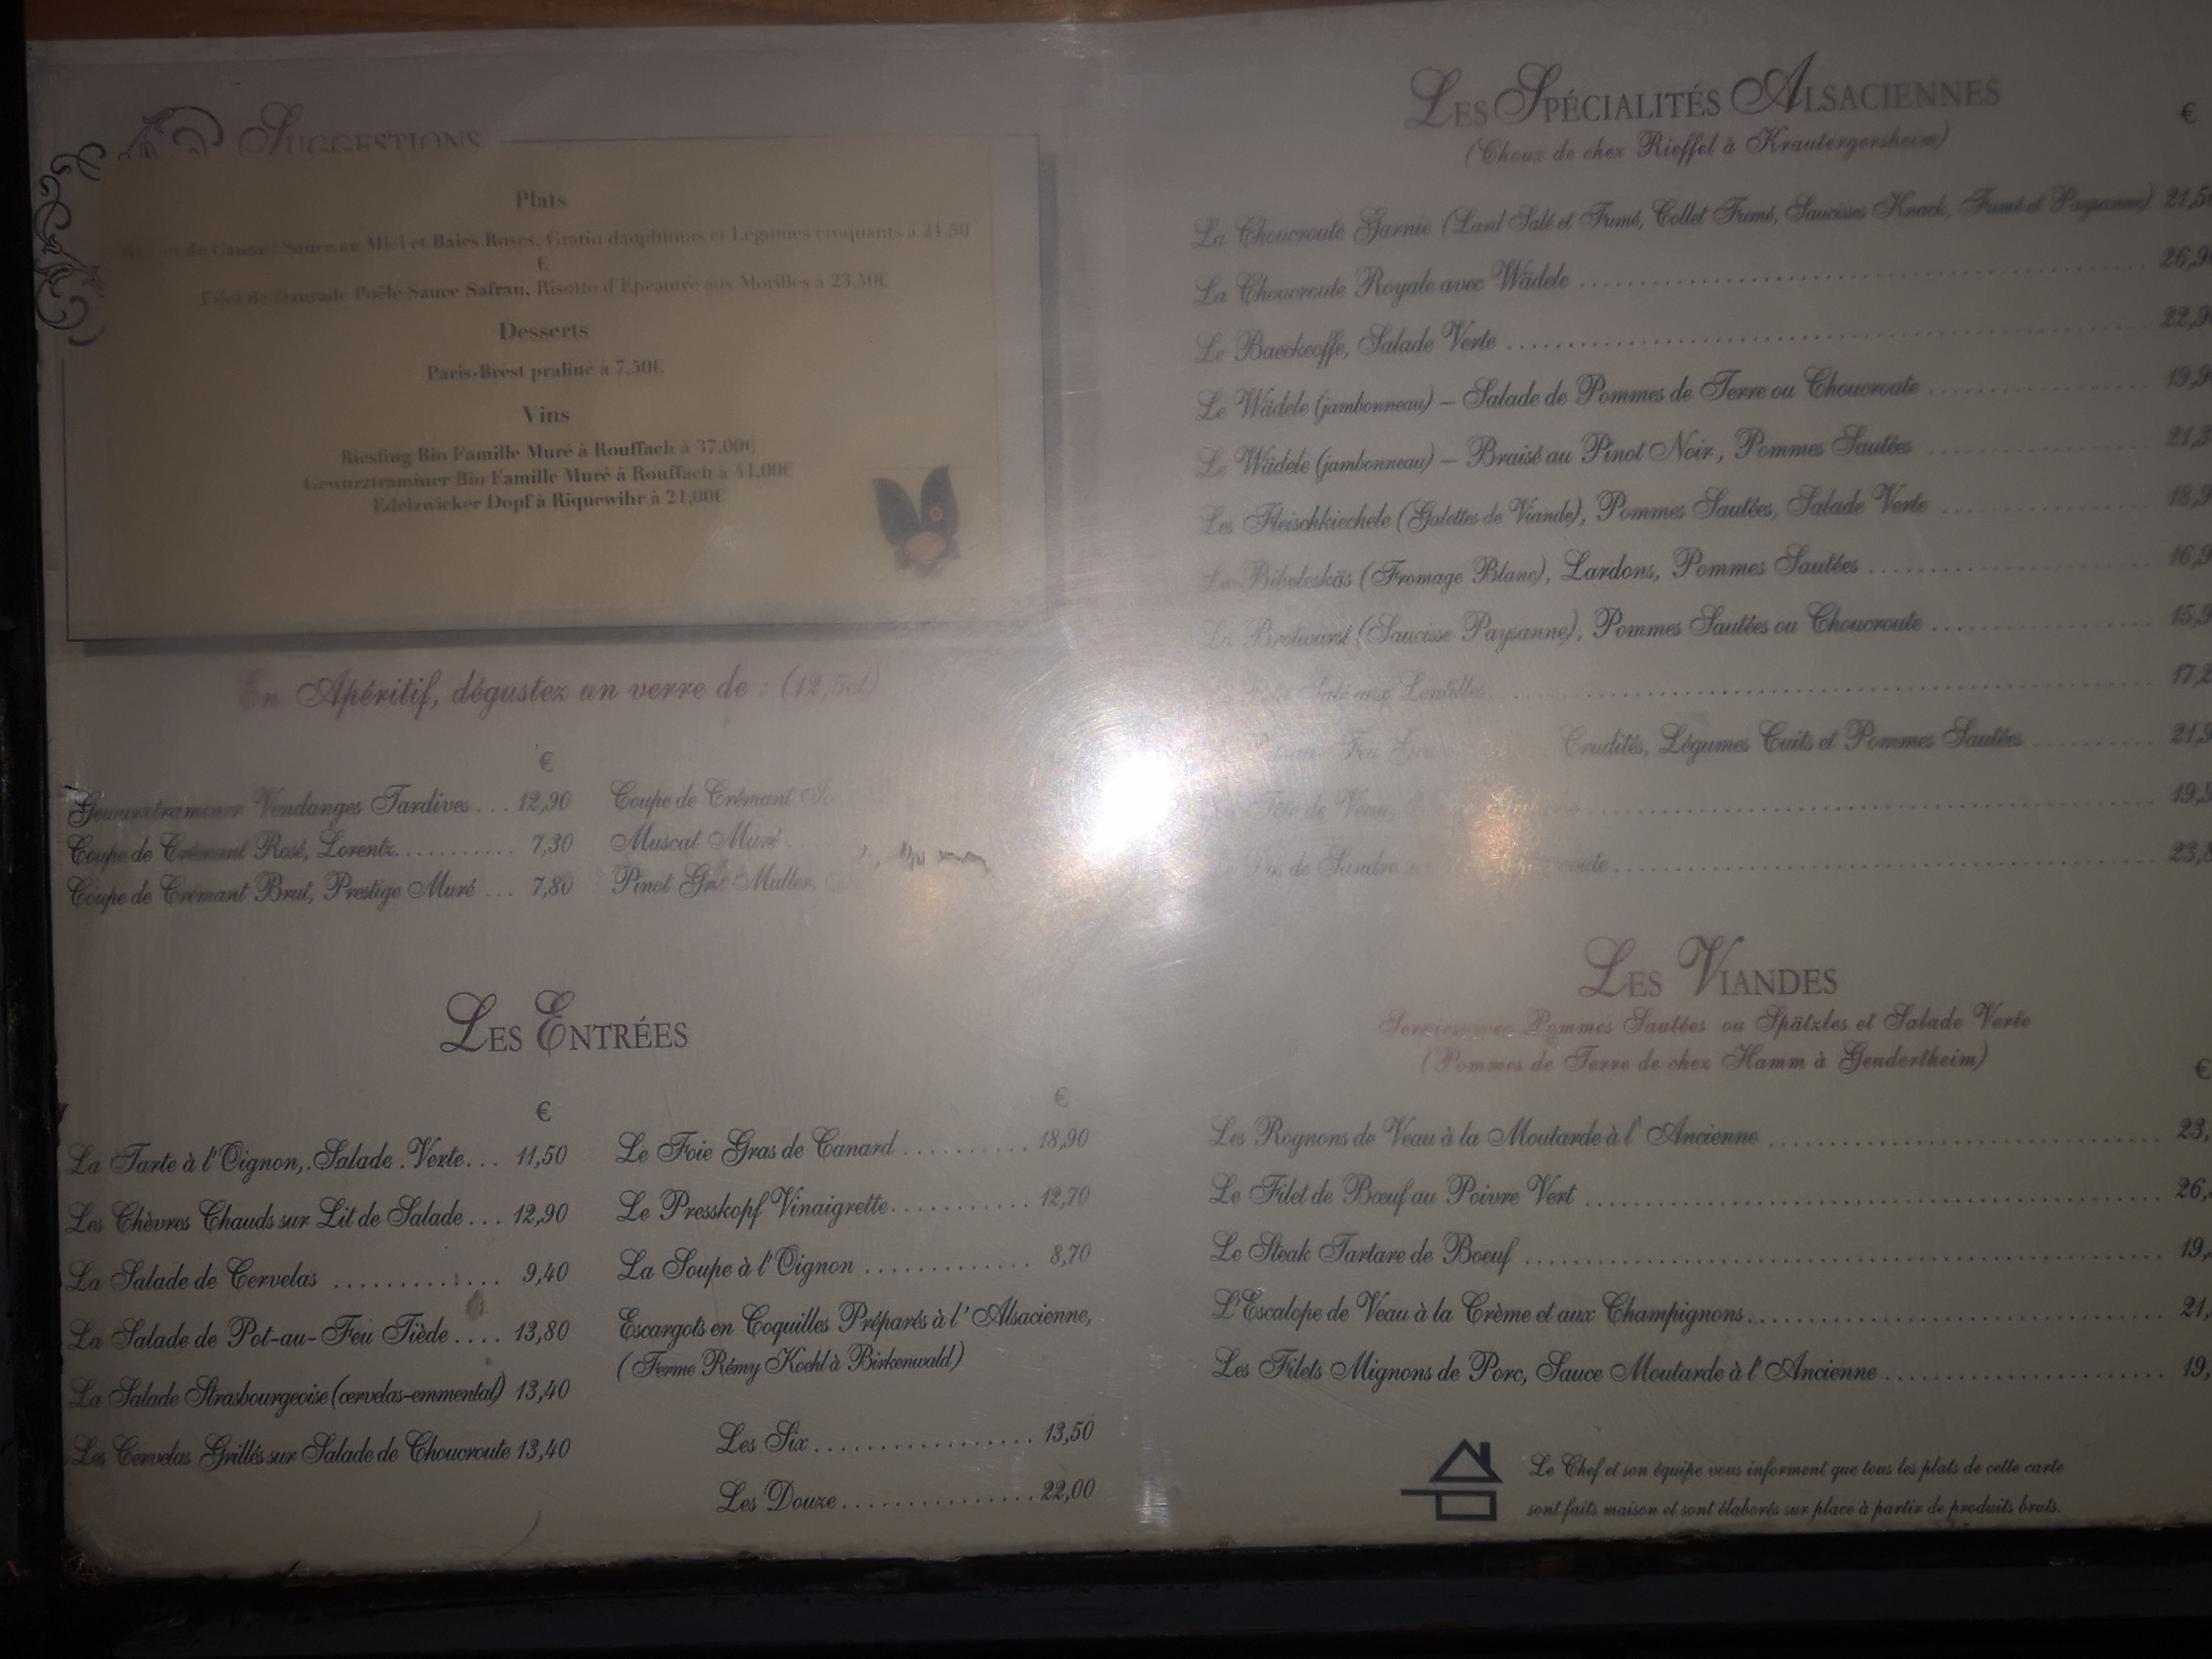 SUGGESTIONS
Plats
de Canard Sauce au Miel et Baies Roses, Gratin dauphinois et Légumes croquants à 21,50
€
Poêlé Sauce Safran, Risotto d'Epeautre aux Morilles à 23,50€
Desserts
Paris-Brest praliné à 7.50€
Vins
Riesling Bio Famille Muré à Rouffach à 37,00€
Gewurztraminer Bio Famille Muré à Rouffach à 41,00€
Edelzwicker Dopf à Riquewihr à 21,00€
En Apéritif, dégustez un verre de : (12,5cl)
€
Gewurztraminer Vendanges Tardives... 12,90
Coupe de Crémant Rosé, Lorentz........... 7,30
Coupe de Crémant Brut, Prestige Muré ... 7,80
Coupe de Crémant
Muscat Muré
Pinot Gris Muller,
LES ENTRÉES
€
La Tarte à l'Oignon, Salade Verte... 11,50
Les Chèvres Chauds sur Lit de Salade... 12,90
La Salade de Cervelas ............. 9,40
La Salade de Pot-au-Feu Tiède.... 13,80
La Salade Strasbourgeoise (cervelas-emmental) 13,40
Les Cervelas Grillés sur Salade de Choucroute 13,40
€
Le Foie Gras de Canard .......... 18,90
Le Presskopf Vinaigrette........... 12,70
La Soupe à l'Oignon ............. 8,70
Escargots en Coquilles Préparés à l'Alsacienne,
(Ferme Rémy Koehl à Birkenwald)
Les Six.................. 13,50
Les Douze................ 22,00
LES SPÉCIALITÉS ALSACIENNES
€
(Choux de chez Rieffel à Krautergersheim)
La Choucroute Garnie (Lard Salé et Fumé, Collet Fumé, Saucisses Knack, Fumé et Paysanne) 21,5
La Choucroute Royale avec Wädele .......... 26,9
Le Baeckeoffe, Salade Verte .......... 22,9
Le Wädele (jambonneau) – Salade de Pommes de Terre ou Choucroute .......... 19,9
Le Wädele (jambonneau) – Braisé au Pinot Noir, Pommes Sautées .......... 21,
Les Fleischkiechele (Galettes de Viande), Pommes Sautées, Salade Verte .......... 18,9
Le Bibeleskäs (Fromage Blanc), Lardons, Pommes Sautées .......... 16,9
La Brotwurst (Saucisse Paysanne), Pommes Sautées ou Choucroute .......... 15,9
Salé aux Lentilles .......... 17,2
Feu Crudités, Légumes Cuits et Pommes Sautées .......... 21,9
Tête de Veau, .......... 19,9
de Sandre .......... 23,8
LES VIANDES
Servies avec Pommes Sautées ou Spätzles et Salade Verte
(Pommes de Terre de chez Hamm à Geudertheim)
€
Les Rognons de Veau à la Moutarde à l'Ancienne .......... 23,
Le Filet de Bœuf au Poivre Vert .......... 26,
Le Steak Tartare de Boeuf .......... 19,
L'Escalope de Veau à la Crème et aux Champignons .......... 21,
Les Filets Mignons de Porc, Sauce Moutarde à l'Ancienne .......... 19,
Le Chef et son équipe vous informent que tous les plats de cette carte
sont faits maison et sont élaborés sur place à partir de produits bruts.